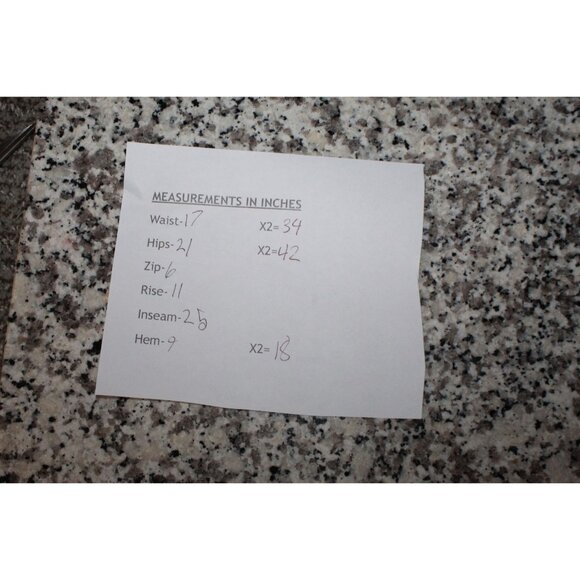 MEASUREMENTS IN INCHES
Waist-17 X2= 34
Hips-21 X2=42
Zip-6
Rise-11
Inseam-25
Hem-9 X2= 18